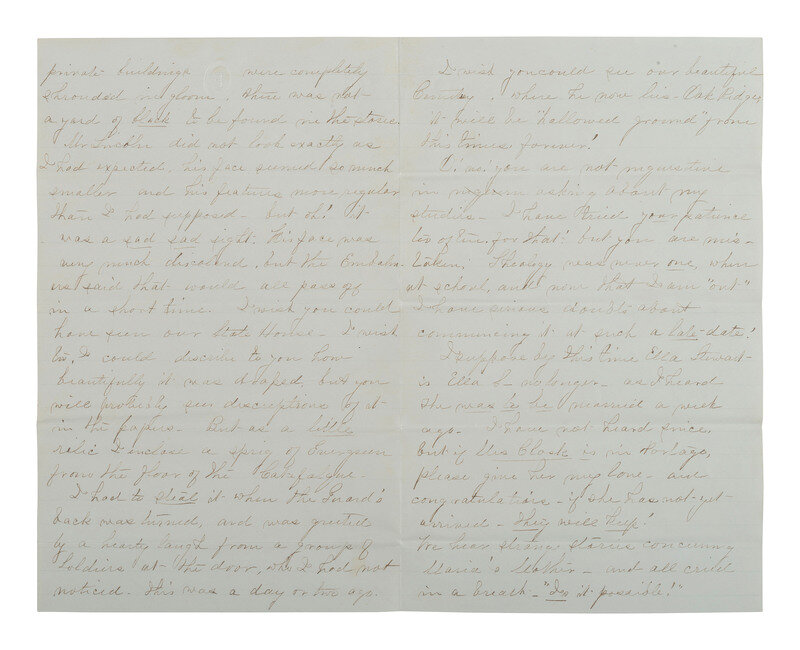 private buildings were completely
shrouded in gloom. There was not
a yard of black to be found in the stores.
Mr Lincoln did not look exactly as
I had expected, his face seemed so much
smaller and his features more regular
than I had supposed - but oh! it
was a sad sad sight. His face was
very much discolored, but the Embalm-
er said that would all pass off
in a short time. I wish you could
have seen our State House - I wish
too, I could describe to you how
beautifully it was draped, but you
will probably see descriptions of it
in the papers. But as a little
relic I enclose a sprig of Evergreen
from the floor of the Catafalque.
I had to steal it when the Guard's
back was turned, and was greeted
by a hearty laugh from a group of
Soldiers at the door, who I had not
noticed. This was a day or two ago.
I wish you could see our beautiful
Cemetery, where he now lies - Oak Ridge,
it will be "hallowed ground" from
this time, forever!
O! no! you are not inquisitive
in asking about my
studies - I have tried your patience
too often for that! but you are mis-
taken; Theology was never one, when
at school, and now that I am "out"
I have serious doubts about
commencing it at such a late date!
I suppose by this time Ella Stewart
is Ella S- no longer - as I heard
she was to be married a week
ago. I have not heard since,
but if Mrs Clark is in Portage,
please give her my love and
congratulations - if she has not yet
arrived - they will keep!
We hear strange stories concerning
Maria's - and all cried
in a breath - "Is it possible!"